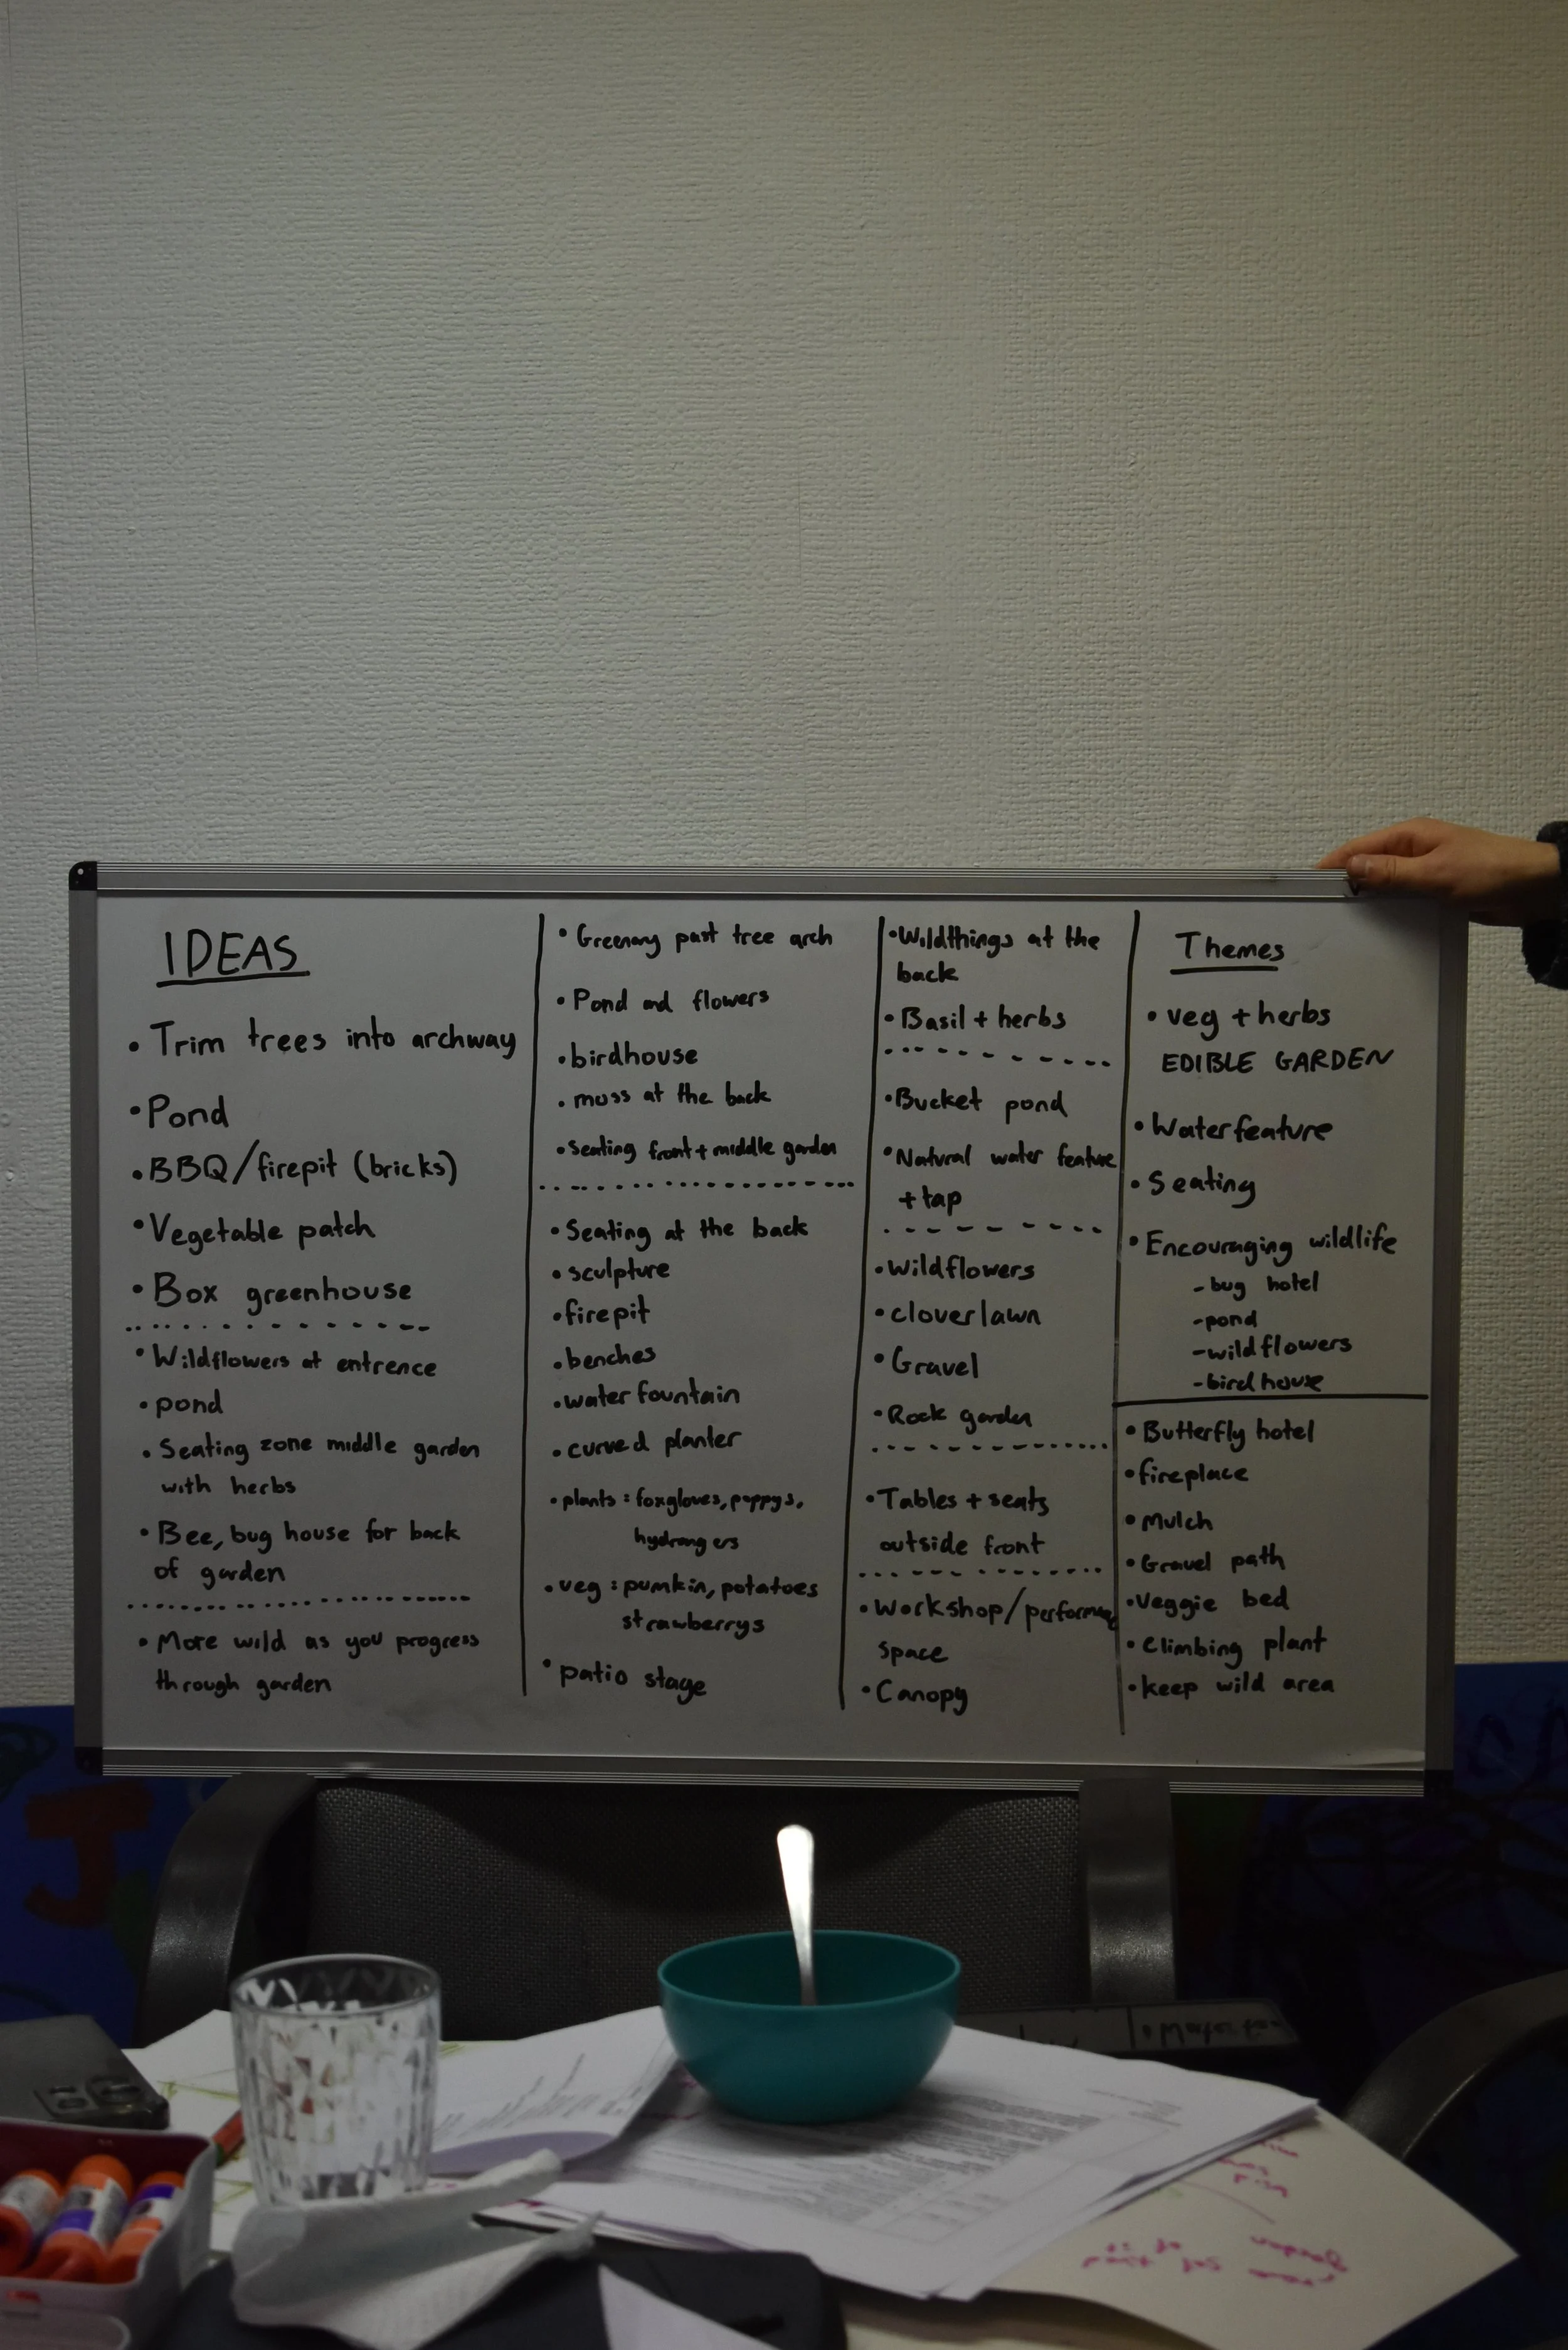 IDEAS
• Trim trees into archway
• Pond
• BBQ/firepit (bricks)
• Vegetable patch
• Box greenhouse
• Wildflowers at entrence
• pond
• Seating zone middle garden
with herbs
• Bee, bug house for back
of garden
• More wild as you progress
through garden
• Greenary past tree arch
• Pond and flowers
• birdhouse
• moss at the back
• seating front + middle garden
• Seating at the back
• sculpture
• firepit
• benches
• water fountain
• curved planter
• plants : foxgloves, poppys,
hydrangers
• veg : pumkin, potatoes
strawberrys
• patio stage
• Wildthings at the
back
• Basil + herbs
• Bucket pond
• Natural water feature
+ tap
• Wildflowers
• cloverlawn
• Gravel
• Rock garden
• Tables + seats
outside front
• Workshop/performance
space
• Canopy
Themes
• veg + herbs
EDIBLE GARDEN
• Waterfeature
• Seating
• Encouraging wildlife
- bug hotel
- pond
- wildflowers
- birdhouse
• Butterfly hotel
• fireplace
• Mulch
• Gravel path
• Veggie bed
• Climbing plant
• keep wild area